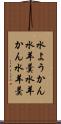 水ようかん
水羊羹水羊
かん水羊羹